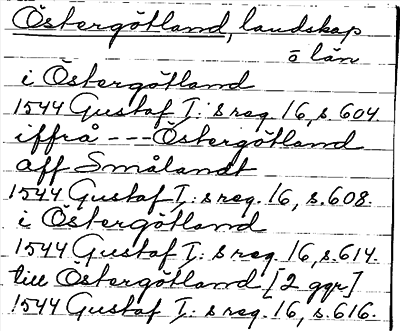 Östergötland, landskap
o län
i Östergötland
1544 Gustaf I:s reg. 16, s. 604.
iffrå --- Östergötland
aff Smålandt
1544 Gustaf I:s reg. 16, s. 608.
i Östergötland
1544 Gustaf I:s reg. 16, s. 614.
till Östergötland [2 ggr]
1544 Gustaf I:s reg. 16, s. 616.